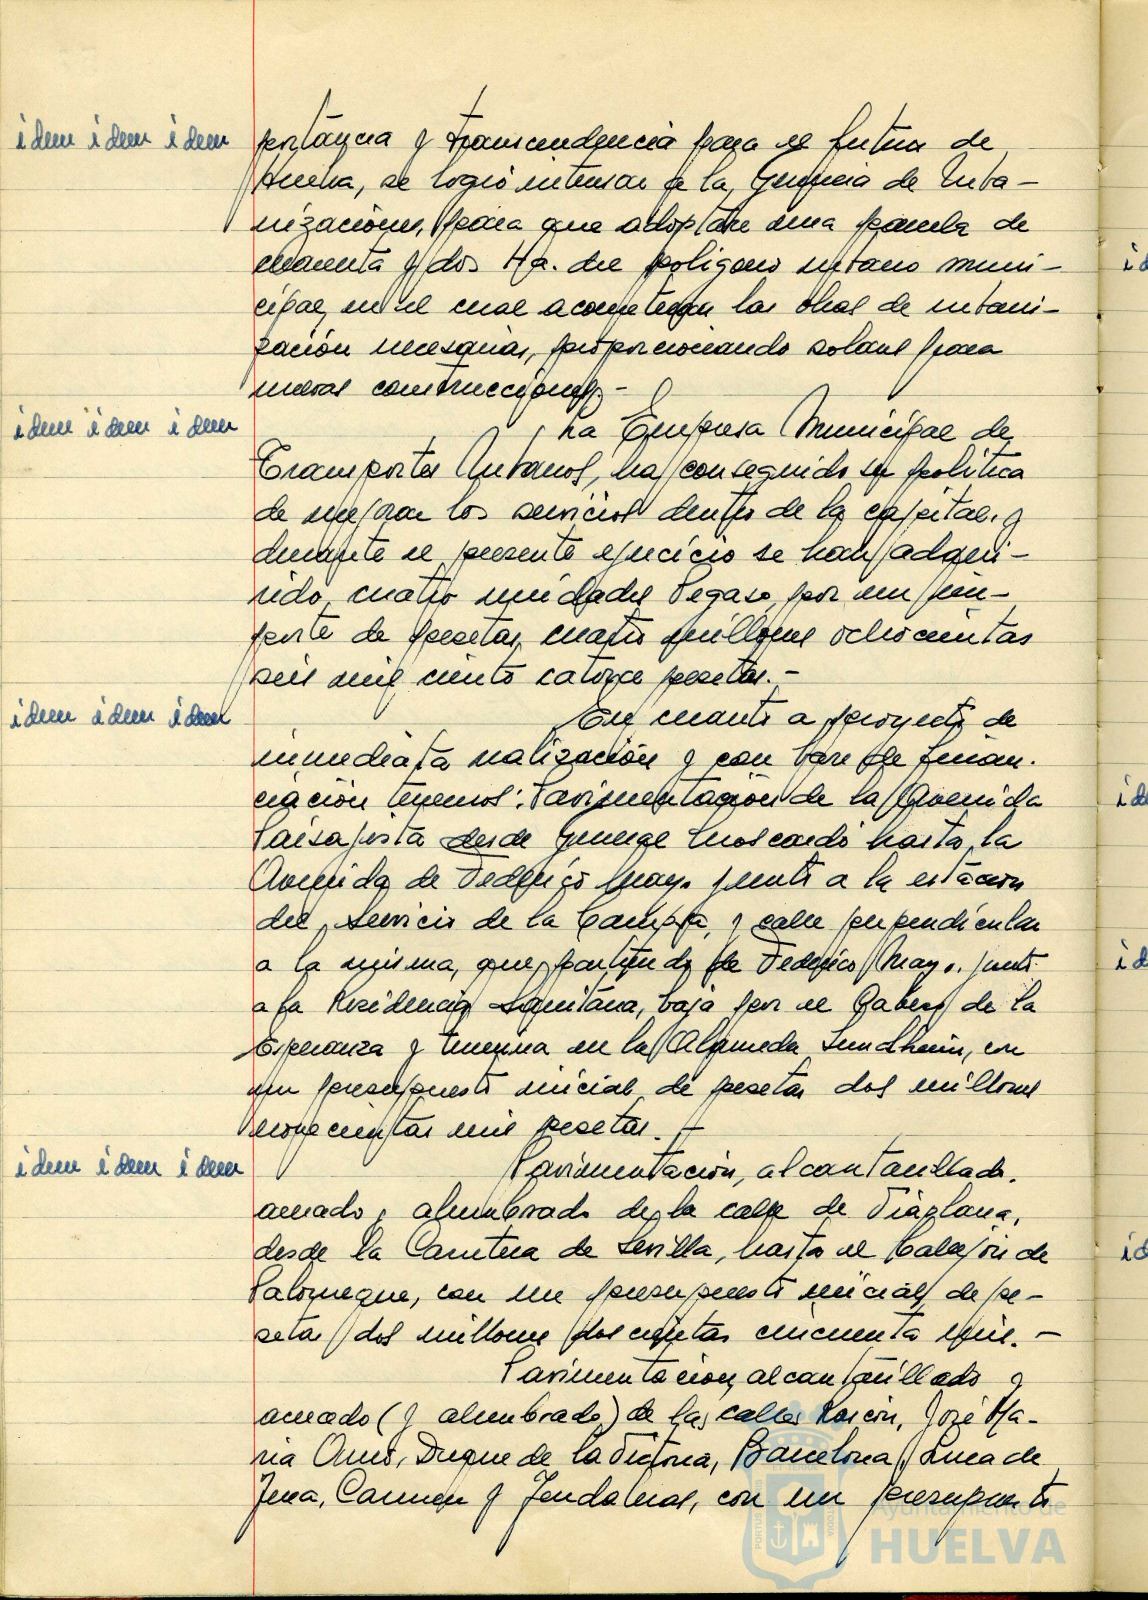 idem idem idem
portancia y transcendencia para el futuro de
Huelva, se logró interesar a la Gerencia de Urba-
nización, para que adoptase una parcela de
cuarenta y dos Ha. del polígono urbano muni-
cipal, en el cual acometegan las obras de urbani-
zación necesarias, proporcionando solares para
nuevas construcciones.-
idem idem idem
La Empresa Municipal de
Transportes Urbanos, ha conseguido su política
de mejorar los servicios dentro de la capital, y
durante el presente ejercicio se han adqui-
rido cuatro unidades Pegaso, por un im-
porte de pesetas, cuatro millones ochocientas
seis mil ciento catorce pesetas.-
idem idem idem
En cuanto a proyecto de
inmediata realización y con base de finan-
ciación tenemos: Pavimentación de la Avenida
Paisajista desde General Moscardó hasta la
Avenida de Federico Mayo, junto a la estación
del Servicio de la Campsa, y calle perpendicular
a la misma, que partiendo de Federico Mayo, junto
a la Residencia Sanitaria, baja por el Cabezo de la
Esperanza y termina en la Alameda Sundheim, con
un presupuesto inicial de pesetas dos millones
novecientas mil pesetas.-
idem idem idem
Pavimentación, alcantarillado,
acerado, alumbrado de la calle de Viaplana,
desde la Carretera de Sevilla, hasta el Callejón de
Palomeque, con un presupuesto inicial de pe-
setas dos millones doscientas cincuenta mil.-
Pavimentación, alcantarillado y
acerado (y alumbrado) de las calles Rascón, José Ma-
ría Amo, Duque de la Victoria, Barcelona, Luca de
Tena, Carmen y Tendaleras, con un presupuesto
Ayuntamiento de
HUELVA